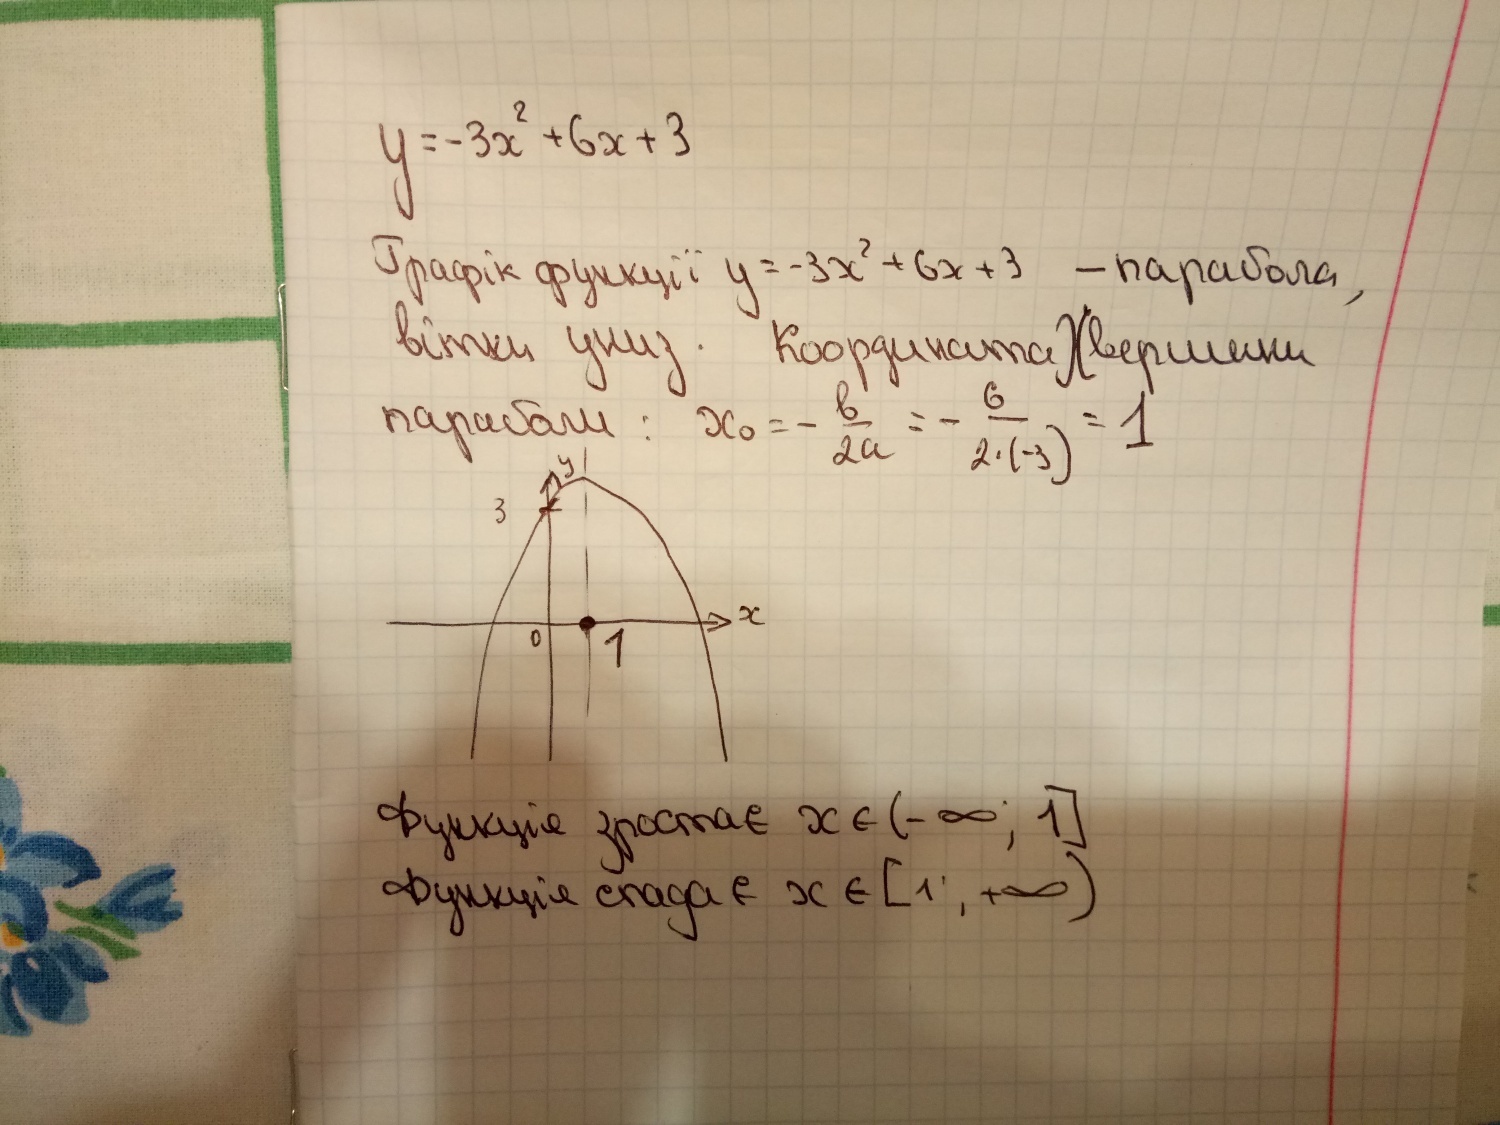 y = -3x² + 6x + 3
Графік функції y = -3x² + 6x + 3 – парабола,
вітки униз. Координата X вершини
параболи: x₀ = - b/2a = - 6/2·(-3) = 1
y
3
0 1 x
Функція зростає x ∈ (-∞; 1]
Функція спадає x ∈ [1; +∞)